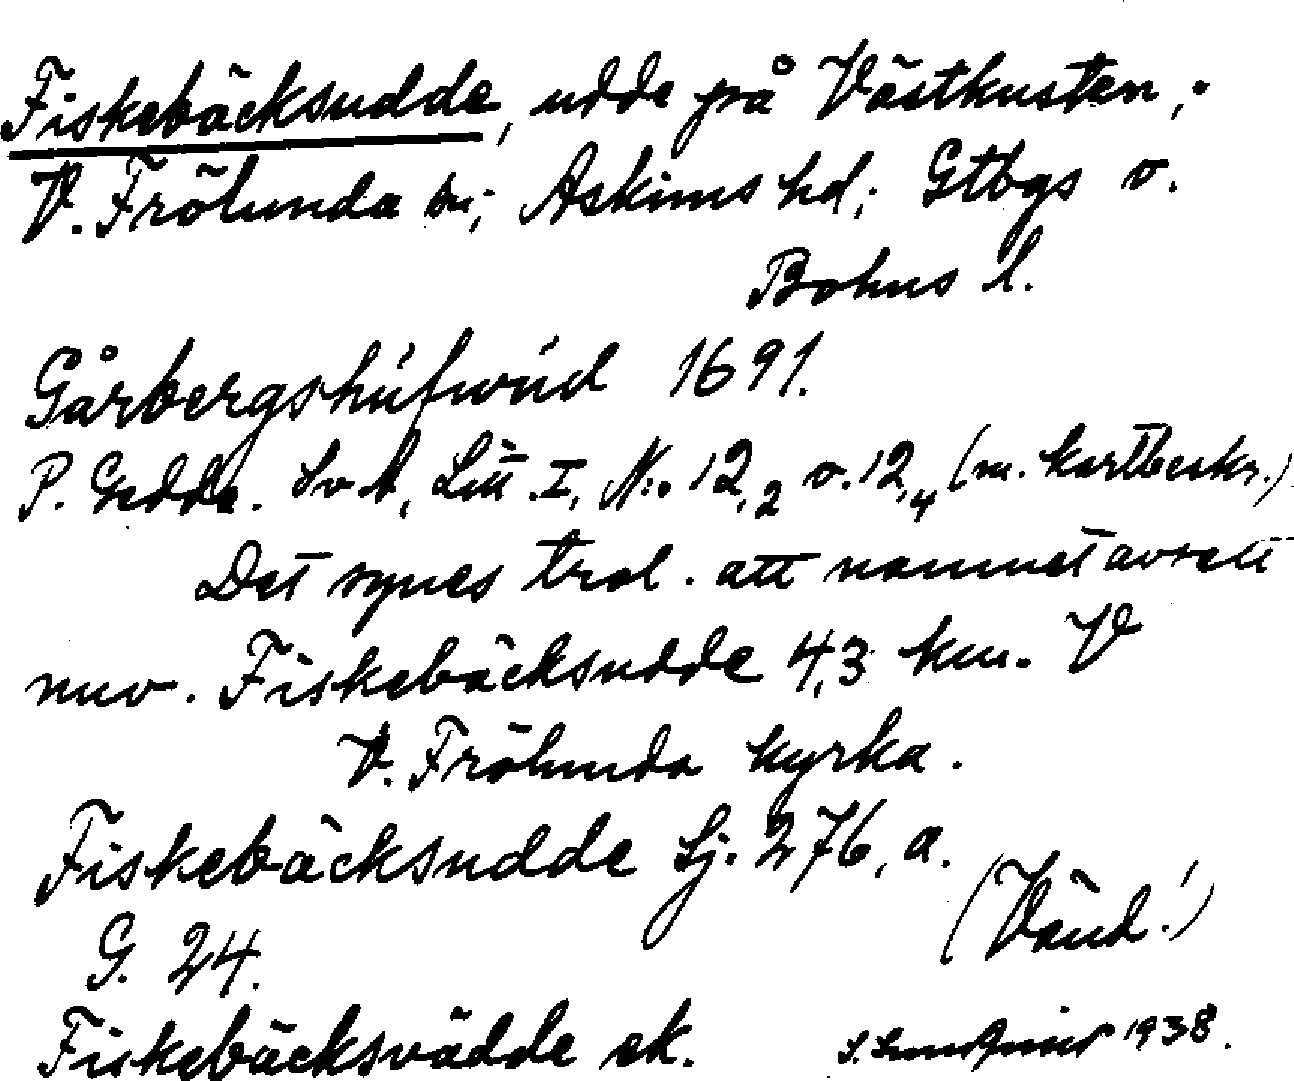 Fiskebäcksudde, udde på Västkusten;
V. Frölunda sn; Askims hd; Gtbgs o.
Bohus l.
Gårbergshúfwúd 1691.
P. Gedda. SvA, Litt. I, N:o 12,2 o. 12,4 (m. kartbeskr.)
Det synes trol. att namnet avsett
nuv. Fiskebäcksudde 4,3 km. V
V. Frölunda kyrka.
Fiskebäcksudde Sj. 276, a.
G. 24.
(Vänd!)
Fiskebäcksvädde ek.
1938.